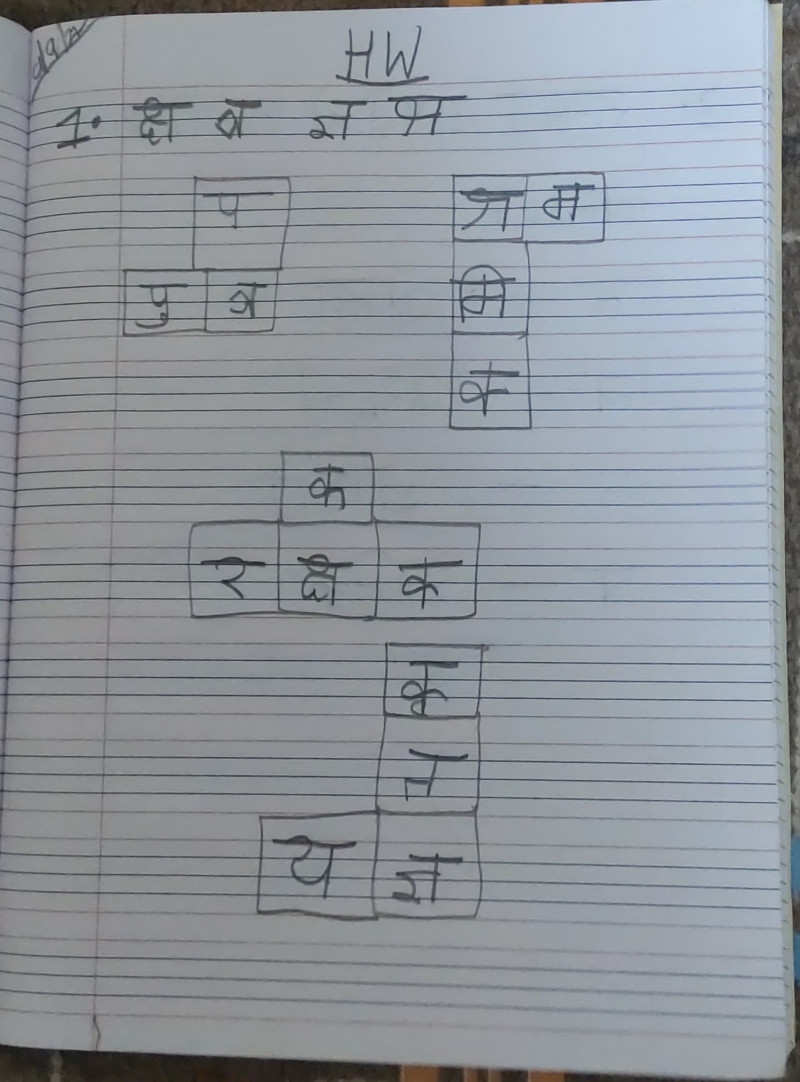 HW
1. क्ष त्र ज्ञ श्र
प
पु त्र
श्र म
मि
क
क
र क्ष क
कृ
त
य ज्ञ